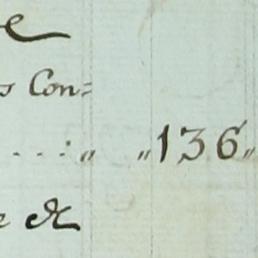 s Con=
...:„ „136„
e &